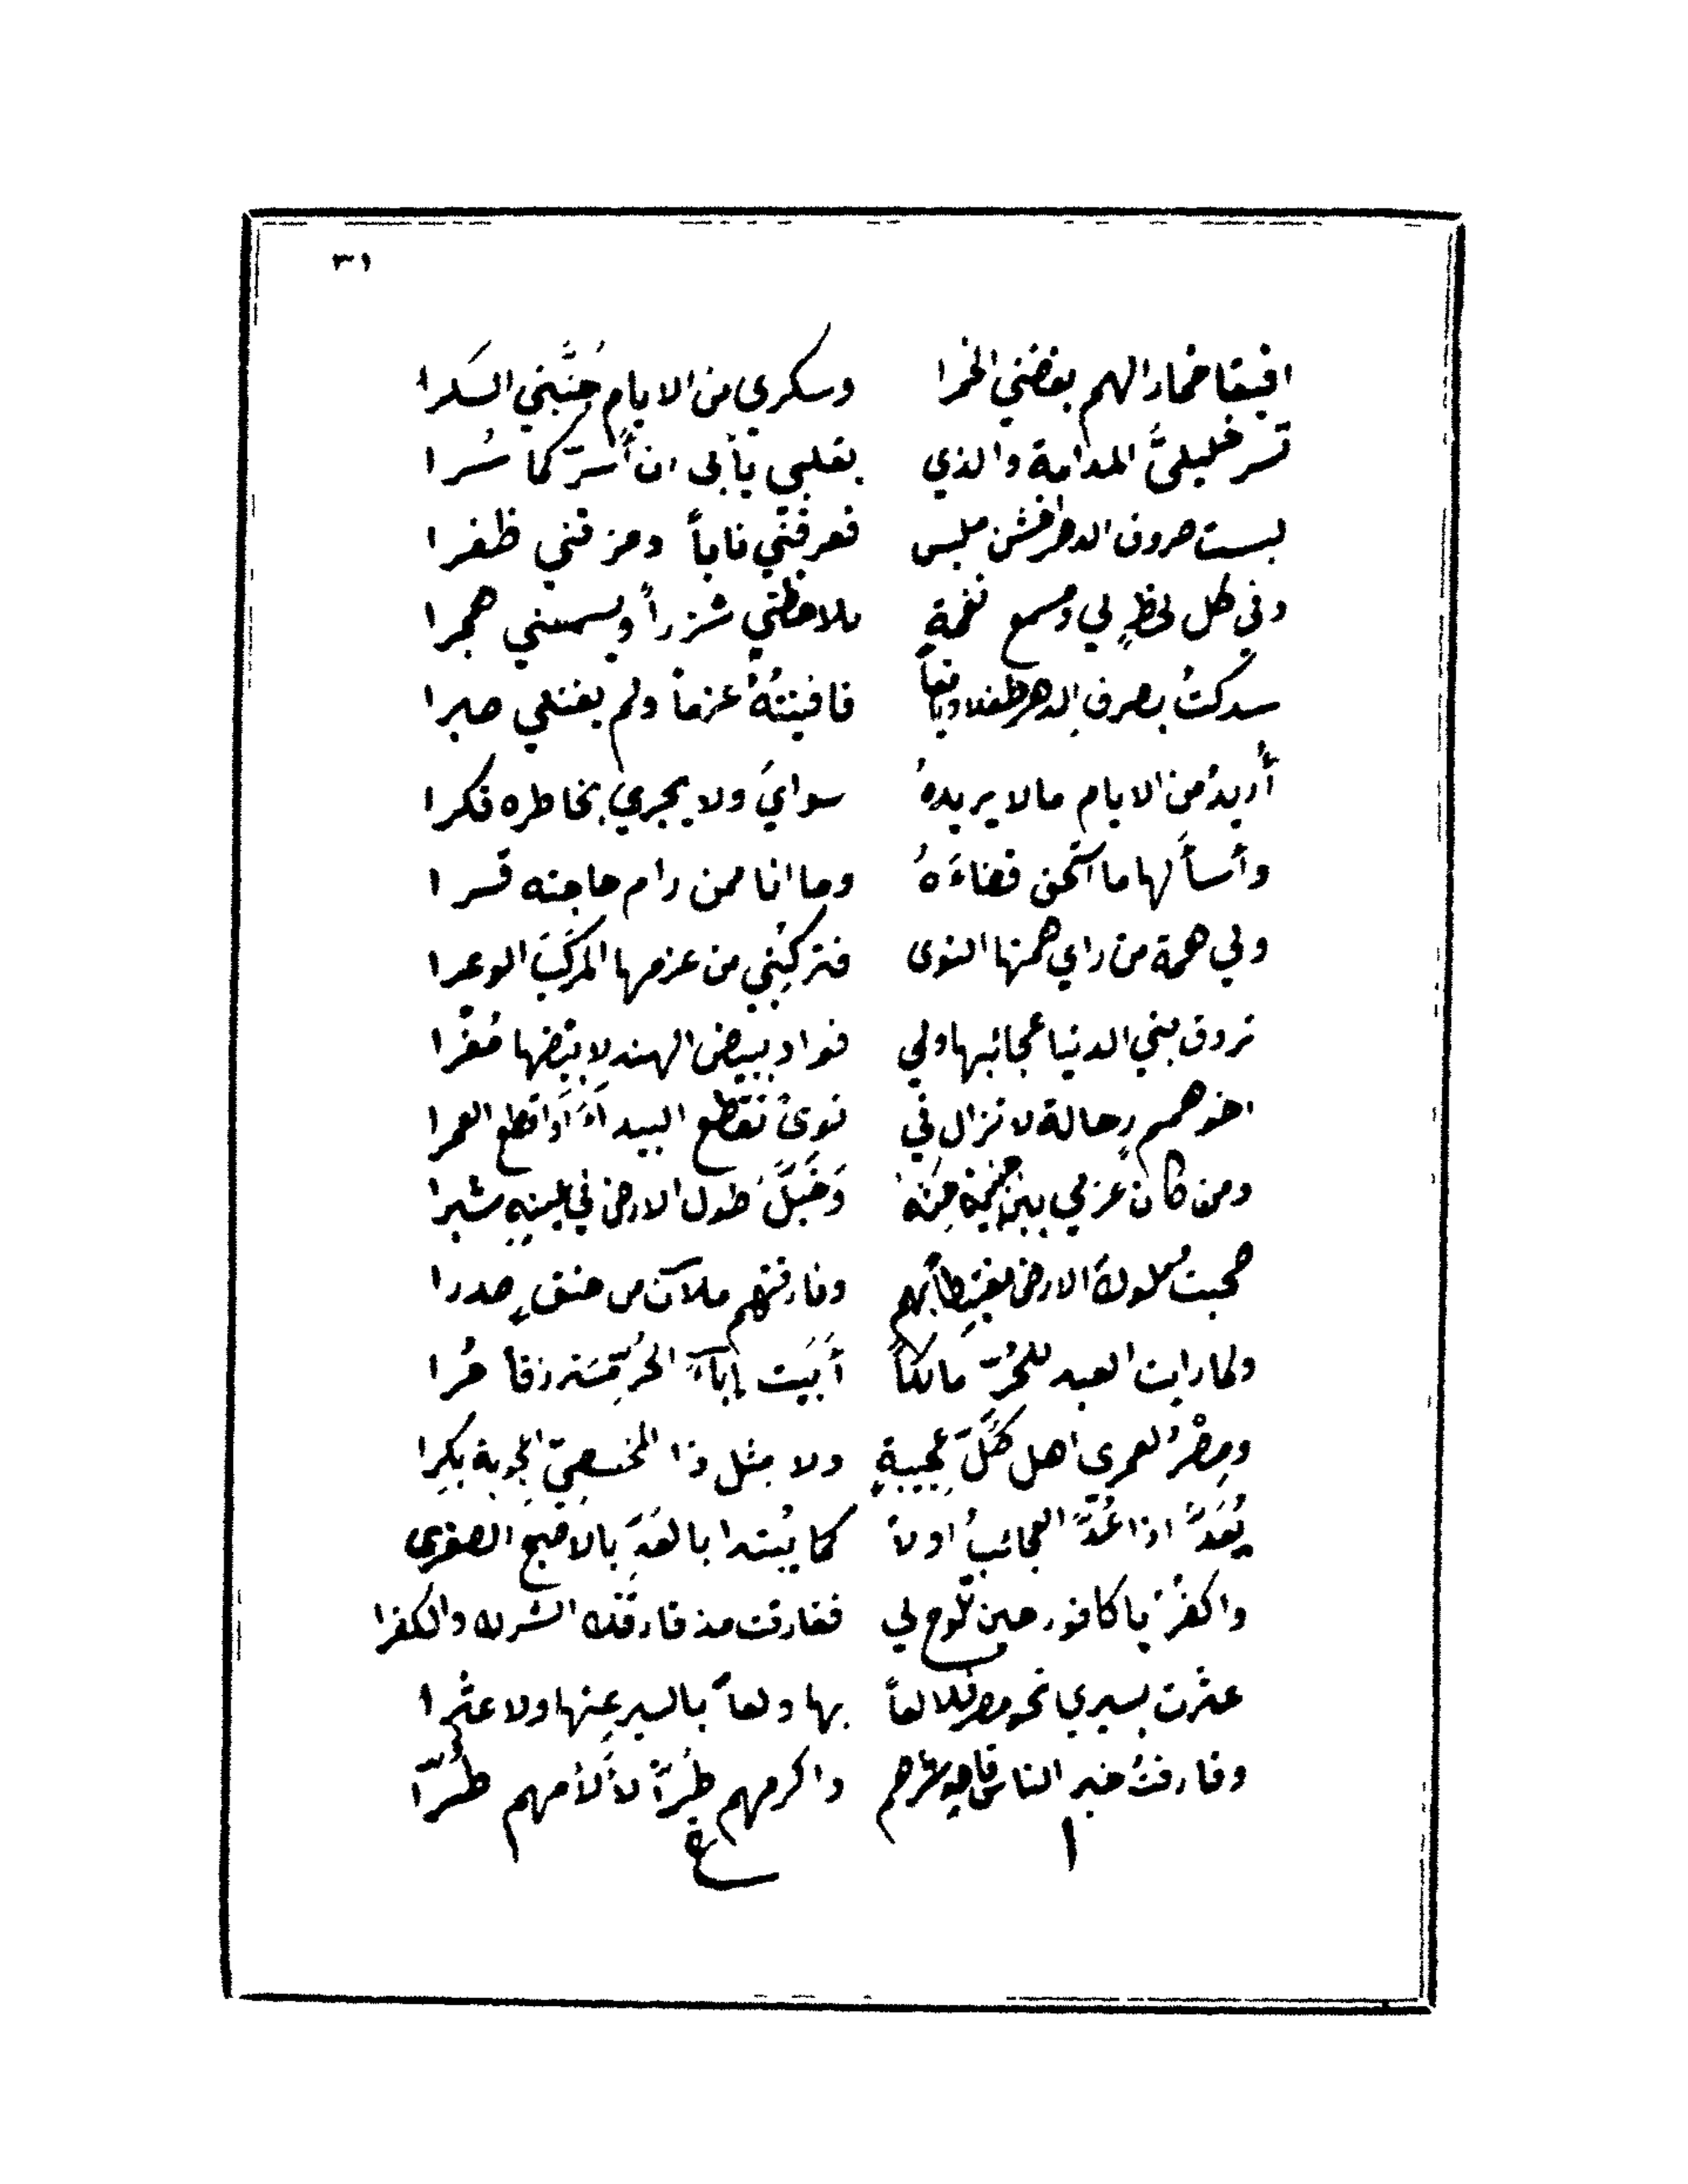 ٣١
افيقا خمار الهم بغضني الخمرا وسكري من الايام جنَّبني السَكرا
تسر خليليَّ المدامة والذي بقلبي يأبى ان أُسرّ كما سُرا
لبست صروف الدهر اخشن ملبس فعرقنني ناباً ومزقنني ظفرا
وفي كل لحظٍ لي ومسمع نغمةٍ يلاحظني شزراً ويسمعني هجرا
سدكتُ بصرف الدهر طفلا ويافعاً فافنيتُهُ عزماً ولم يفنني صبرا
أُريدُ من الايام ما لا يريدهُ سوايَ ولا يجري بخاطره فكرا
وأسأَلها ما استحق قضاءَهُ وما انا ممن رام حاجته قسرا
ولي همة من راي همتها النوى فتركبُني من عزمها المركَبَ الوعرا
تروق بني الدنيا عجائبها ولي فواد ببيض الهند لا بِيضها مُغْرا
اخو همم رحالة لا تزال في نوىً تَقطع البيداءَ او اقطع العمرا
ومن كان عزمي بين جنبيه حثه وَخَيَّلَ طول الارض في عينهِ شبرا
صحبت ملوكَ الارض مغتبطا بهم وفارقتهم ملآن من حنقٍ صدرا
ولما رايت العبد للحُرّ مالكاً أَبَيت إِباءَ الحُرِّ مسترزقاً حُرا
ومِصْرُ لعمري اهل كلَّ عجيبةٍ ولا مثل ذا المخصيّ اعجوبة بِكرا
يُعَدُّ اذا عُدَّ العجائبُ اولاً كما يُبتدا بالعَدّ بالاصبع الصغرى
واكفرُ يا كافور حين تلوح لي ففارقت مذ فارقتك الشرك والكفرا
عثرت بسيري نحو مصر فلا لعاً بها ولعاً بالسير عنها ولا عثْرا
وفارقتُ خير الناس قاصد شرهم واكرمهم طُرّاً لأَلأمهم طُرّاً